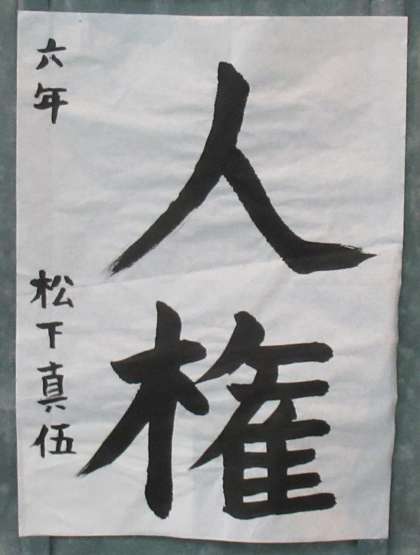 人権
六年 松下真伍